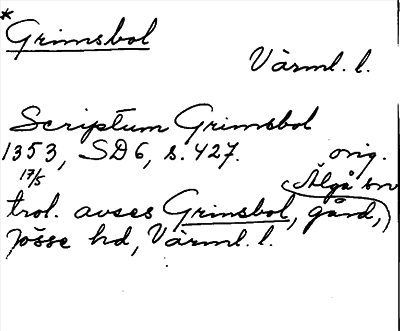 * Grimsbol
Värml. l.
Scriptum Grimsbol
1353, SD 6, s. 427. orig.
17/5
Älgå sn
trol. avses Grimsbol, gård,
Jösse hd, Värml. l.